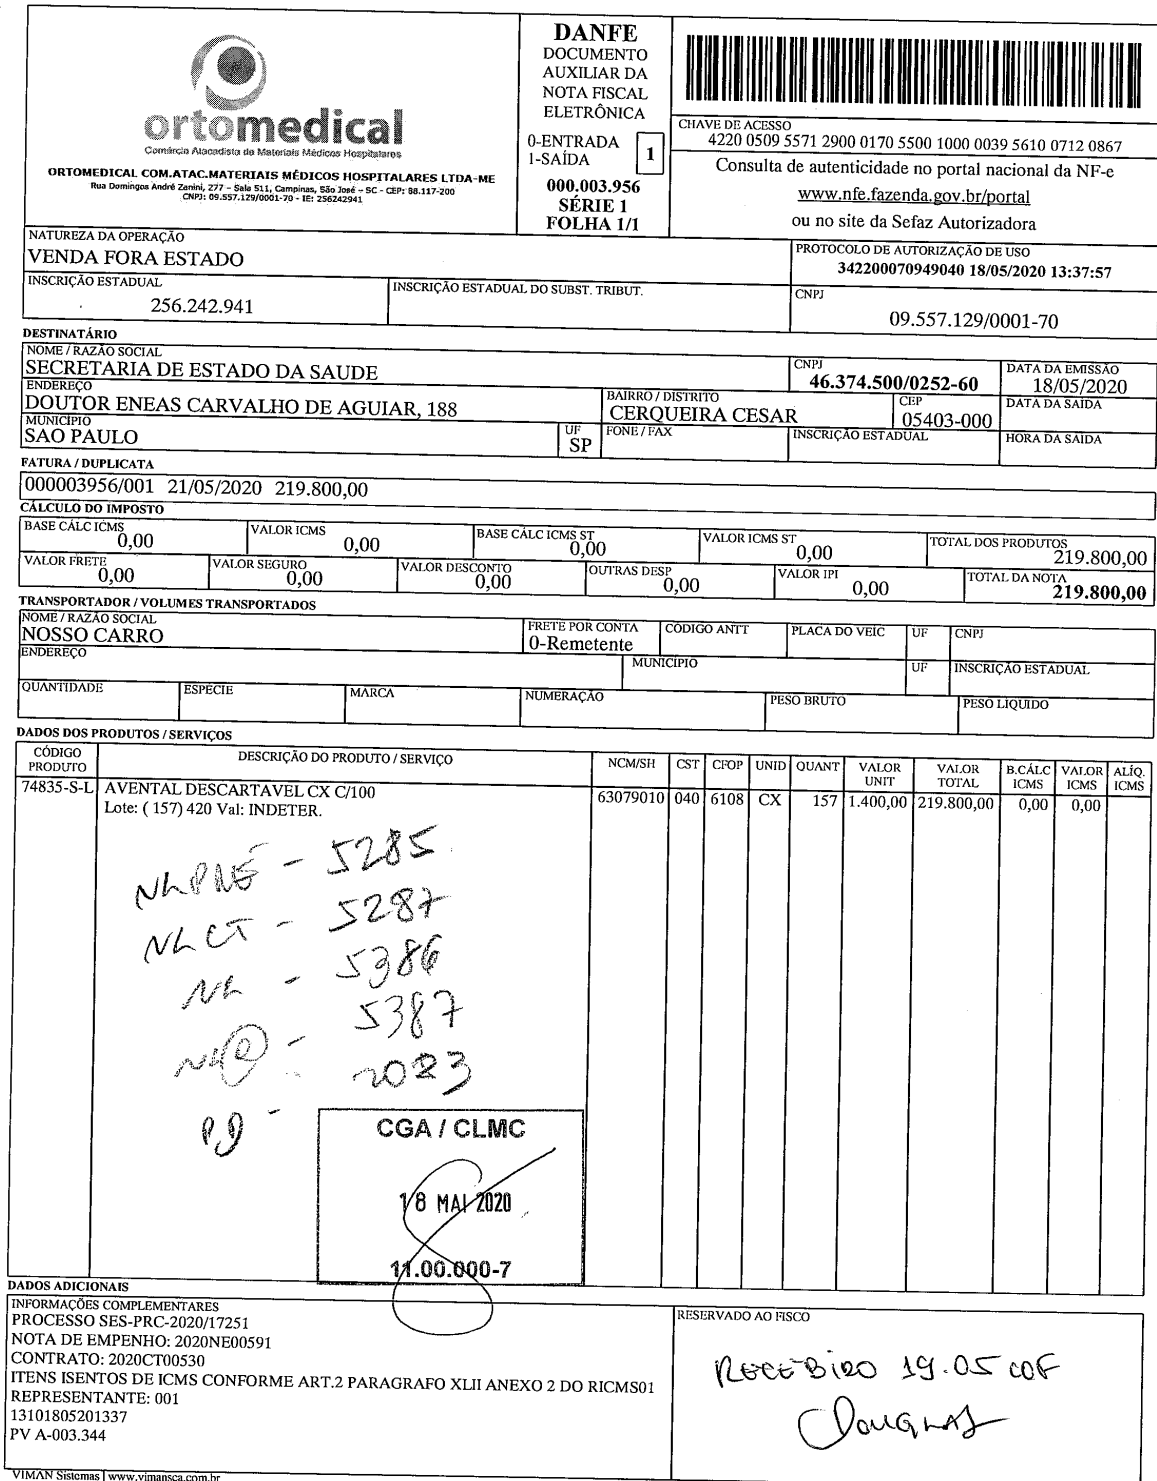 ortomedical
Comércio Atacadista de Materiais Médicos Hospitalares
ORTOMEDICAL COM.ATAC.MATERIAIS MÉDICOS HOSPITALARES LTDA-ME
Rua Domingos André Zanini, 277 - Sala 511, Campinas, São José - SC - CEP: 88.117-200
CNPJ: 09.557.129/0001-70 - IE: 256242941
DANFE
DOCUMENTO
AUXILIAR DA
NOTA FISCAL
ELETRÔNICA
0-ENTRADA
1-SAÍDA
1
000.003.956
SÉRIE 1
FOLHA 1/1
CHAVE DE ACESSO
4220 0509 5571 2900 0170 5500 1000 0039 5610 0712 0867
Consulta de autenticidade no portal nacional da NF-e
www.nfe.fazenda.gov.br/portal
ou no site da Sefaz Autorizadora
NATUREZA DA OPERAÇÃO
VENDA FORA ESTADO
PROTOCOLO DE AUTORIZAÇÃO DE USO
342200070949040 18/05/2020 13:37:57
INSCRIÇÃO ESTADUAL
256.242.941
INSCRIÇÃO ESTADUAL DO SUBST. TRIBUT.
CNPJ
09.557.129/0001-70
DESTINATÁRIO
NOME / RAZÃO SOCIAL
SECRETARIA DE ESTADO DA SAUDE
CNPJ
46.374.500/0252-60
DATA DA EMISSÃO
18/05/2020
ENDEREÇO
DOUTOR ENEAS CARVALHO DE AGUIAR, 188
BAIRRO / DISTRITO
CERQUEIRA CESAR
CEP
05403-000
DATA DA SAÍDA
MUNICÍPIO
SAO PAULO
UF
SP
FONE / FAX
INSCRIÇÃO ESTADUAL
HORA DA SAÍDA
FATURA / DUPLICATA
000003956/001 21/05/2020 219.800,00
CÁLCULO DO IMPOSTO
BASE CÁLC ICMS
0,00
VALOR ICMS
0,00
BASE CÁLC ICMS ST
0,00
VALOR ICMS ST
0,00
TOTAL DOS PRODUTOS
219.800,00
VALOR FRETE
0,00
VALOR SEGURO
0,00
VALOR DESCONTO
0,00
OUTRAS DESP
0,00
VALOR IPI
0,00
TOTAL DA NOTA
219.800,00
TRANSPORTADOR / VOLUMES TRANSPORTADOS
NOME / RAZÃO SOCIAL
NOSSO CARRO
FRETE POR CONTA
0-Remetente
CÓDIGO ANTT
PLACA DO VEÍC
UF
CNPJ
ENDEREÇO
MUNICÍPIO
UF
INSCRIÇÃO ESTADUAL
QUANTIDADE
ESPÉCIE
MARCA
NUMERAÇÃO
PESO BRUTO
PESO LÍQUIDO
DADOS DOS PRODUTOS / SERVIÇOS
CÓDIGO PRODUTO DESCRIÇÃO DO PRODUTO / SERVIÇO NCM/SH CST CFOP UNID QUANT VALOR UNIT VALOR TOTAL B.CÁLC ICMS VALOR ICMS ALÍQ. ICMS
74835-S-L AVENTAL DESCARTAVEL CX C/100 63079010 040 6108 CX 157 1.400,00 219.800,00 0,00 0,00
Lote: ( 157) 420 Val: INDETER.
- 5285
NLCT - 5287
NL - 5386
- 5387
PD - 2083
CGA / CLMC
18 MAI 2020
11.00.000-7
DADOS ADICIONAIS
INFORMAÇÕES COMPLEMENTARES
PROCESSO SES-PRC-2020/17251
NOTA DE EMPENHO: 2020NE00591
CONTRATO: 2020CT00530
ITENS ISENTOS DE ICMS CONFORME ART.2 PARAGRAFO XLII ANEXO 2 DO RICMS01
REPRESENTANTE: 001
13101805201337
PV A-003.344
RESERVADO AO FISCO
RECEBIDO 19.05 COF
Douglas
VIMAN Sistemas | www.vimansca.com.br